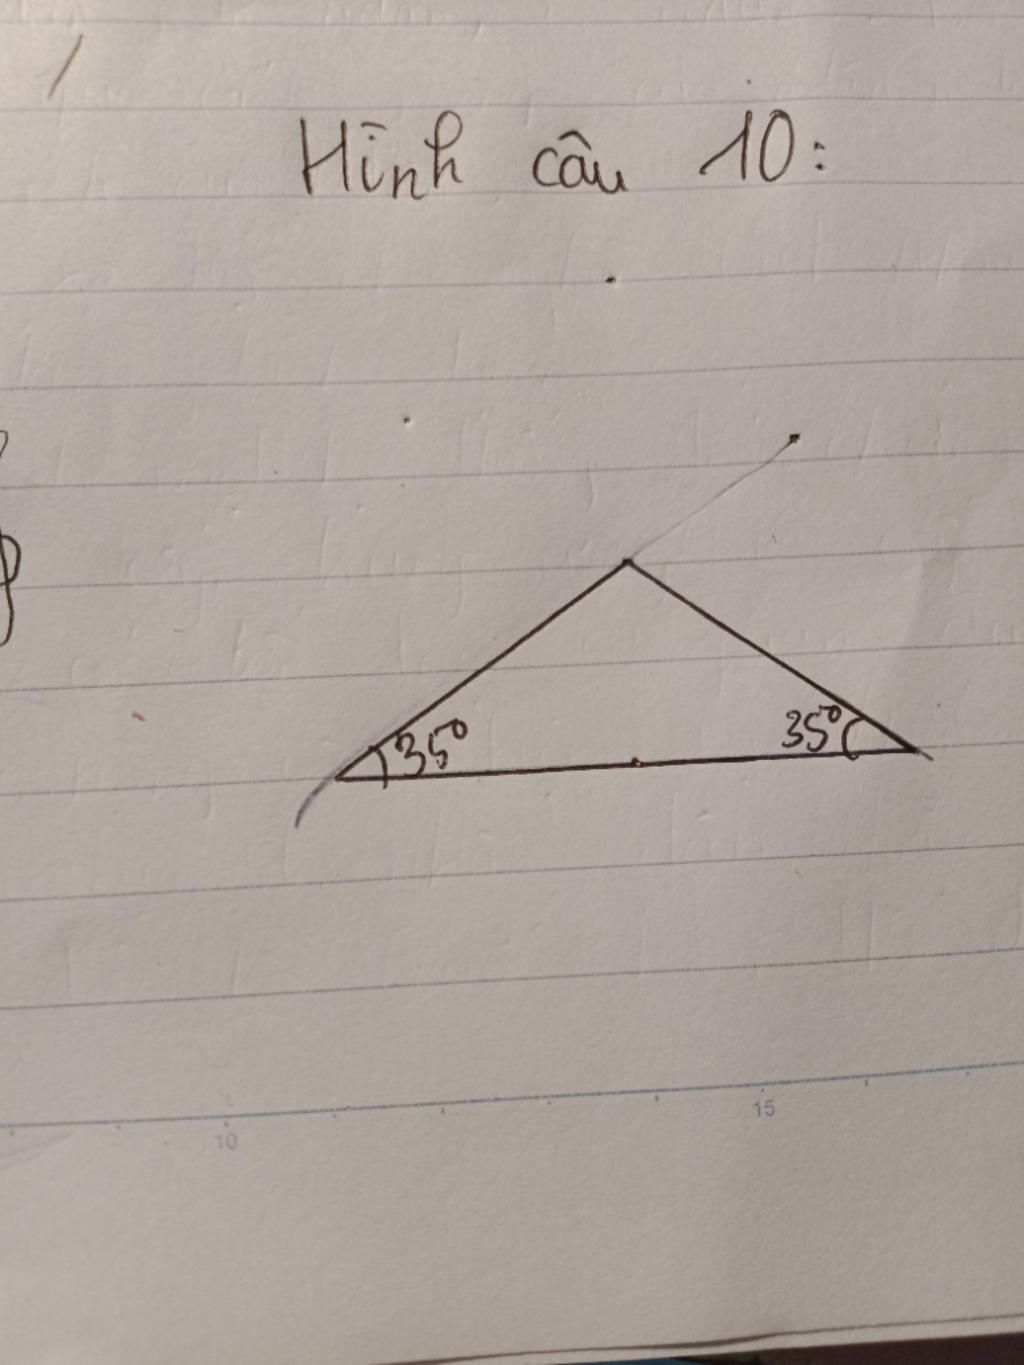 Hình câu 10:
35° 35°
10 15